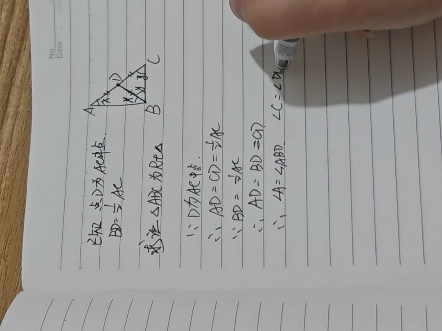 No.
Date
A D C B
已知 点D为AC中点.
BD=½AC
求证 △ABC为Rt△
∵ D为AC中点.
∴ AD=CD=½AC
∵ BD=½AC
∴ AD=BD=CD
∴ ∠A=∠ABD ∠C=∠D